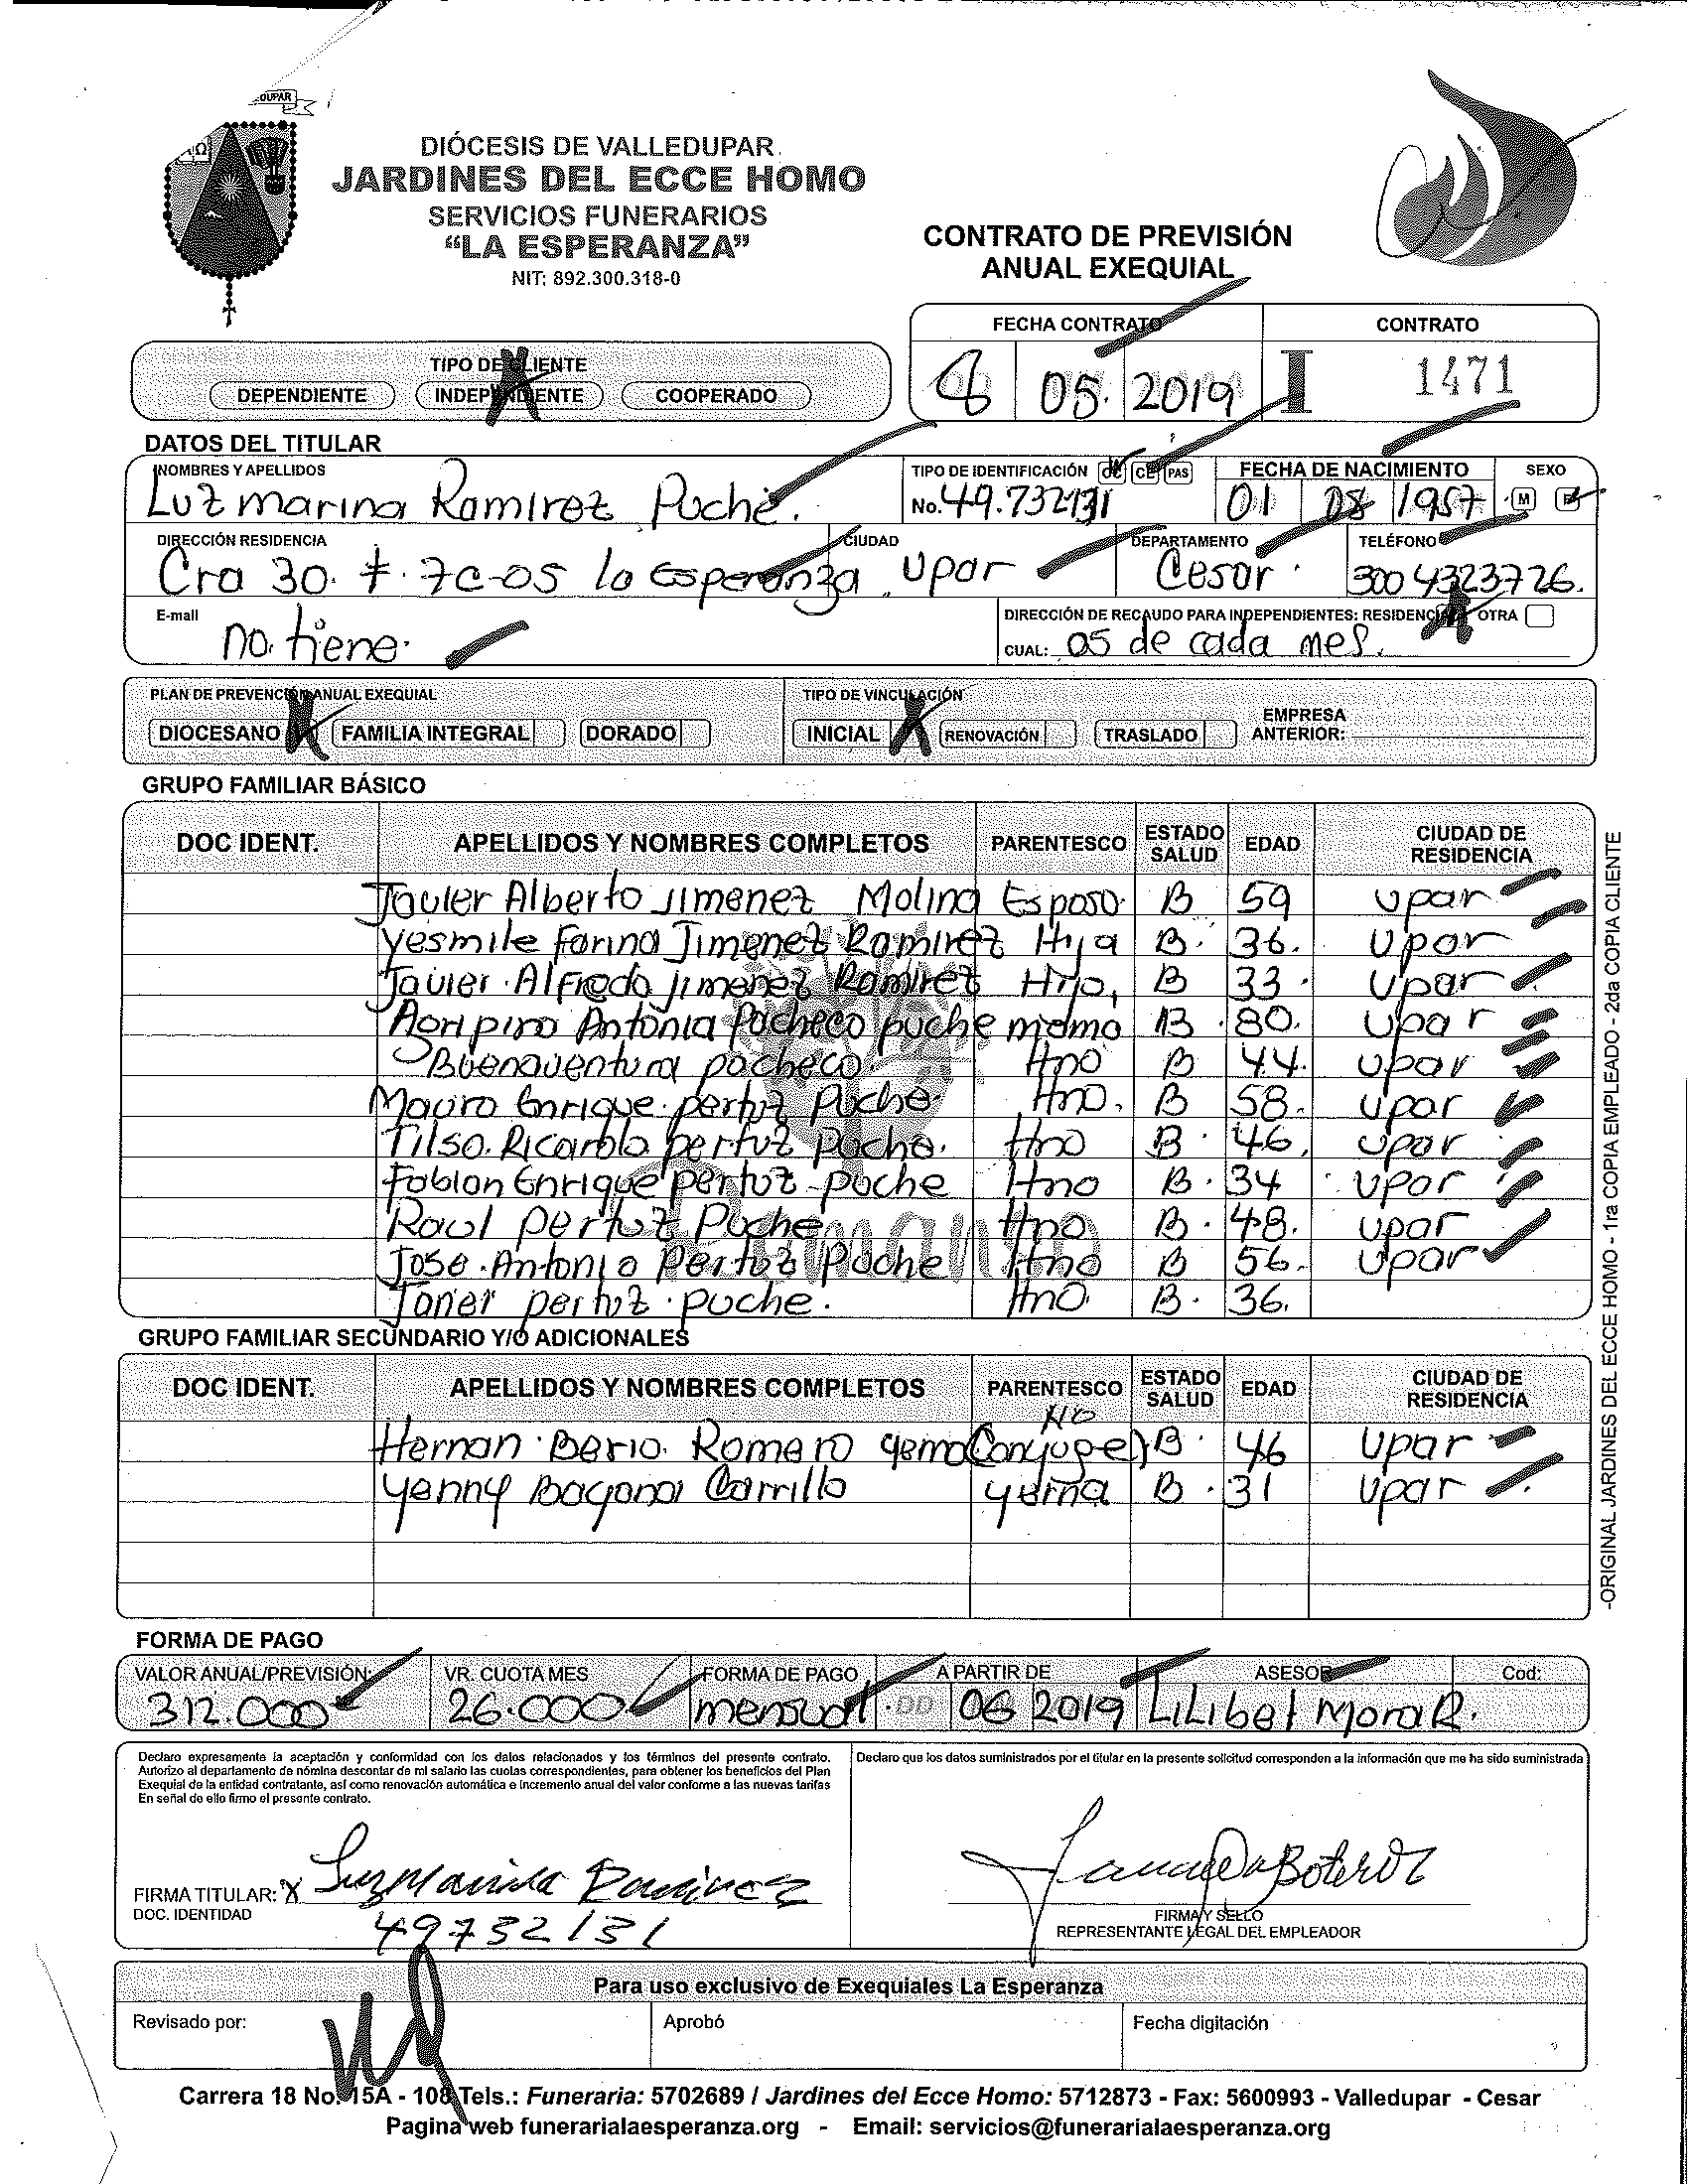 DUPAR
DIÓCESIS DE VALLEDUPAR
JARDINES DEL ECCE HOMO
SERVICIOS FUNERARIOS
“LA ESPERANZA”
NIT: 892.300.318-0
CONTRATO DE PREVISIÓN
ANUAL EXEQUIAL
FECHA CONTRATO CONTRATO
05. 2019 I 1471
TIPO DE CLIENTE
DEPENDIENTE INDEPENDIENTE COOPERADO
DATOS DEL TITULAR
NOMBRES Y APELLIDOS TIPO DE IDENTIFICACIÓN CC CE PAS FECHA DE NACIMIENTO SEXO
Luz marina Ramirez Puche. No. 49.732131 01 08 1957 M F
DIRECCIÓN RESIDENCIA CIUDAD DEPARTAMENTO TELÉFONO
Cra 30. #. 7C-05 la Esperanza. Upar Cesar. 300 4323726.
E-mail DIRECCIÓN DE RECAUDO PARA INDEPENDIENTES: RESIDENCIA OTRA
no. tiene. CUAL: 05 de cada mes.
PLAN DE PREVENCIÓN ANUAL EXEQUIAL TIPO DE VINCULACIÓN
DIOCESANO X FAMILIA INTEGRAL DORADO INICIAL X RENOVACIÓN TRASLADO EMPRESA ANTERIOR:
GRUPO FAMILIAR BÁSICO
DOC IDENT. APELLIDOS Y NOMBRES COMPLETOS PARENTESCO ESTADO SALUD EDAD CIUDAD DE RESIDENCIA
Javier Alberto Jimenez Molina Esposo. B 59 upar
Yesmile Farina Jimenez Ramirez Hija B. 36. Upar
Javier. Alfredo Jimenez Ramirez Hijo, B 33. Upar
Antonia Pacheco puche B. 80. Upar
Buenaventura pacheco. Hno B 44. upar
Mauro Enrique. pertuz Puche. Hno. B 58. upar
Tilso. Ricardo pertuz Puche. Hno B. 46, upar
Fabian Enrique pertuz-puche Hno B. 34 upar
Raul pertuz Puche Hno B. 48. upar
Jose. Antonio Pertuz Puche Hno B 56. upar
pertuz. puche. Hno. B. 36.
GRUPO FAMILIAR SECUNDARIO Y/O ADICIONALES
DOC IDENT. APELLIDOS Y NOMBRES COMPLETOS PARENTESCO ESTADO SALUD EDAD CIUDAD DE RESIDENCIA
NO
Hernan. Romero B. 46 Upar
Yenny Carrillo yerna B. 31 Upar
FORMA DE PAGO
VALOR ANUAL/PREVISIÓN: VR. CUOTA MES FORMA DE PAGO A PARTIR DE ASESOR Cod:
312.000 26.000 mensual DD 06 2019 Lilibet Mora R.
Declaro expresamente la aceptación y conformidad con los datos relacionados y los términos del presente contrato.
Autorizo al departamento de nómina descontar de mi salario las cuotas correspondientes, para obtener los beneficios del Plan
Exequial de la entidad contratante, así como renovación automática e incremento anual del valor conforme a las nuevas tarifas
En señal de ello firmo el presente contrato.
Declaro que los datos suministrados por el titular en la presente solicitud corresponden a la información que me ha sido suministrada
FIRMA TITULAR: X Luz Marina Ramirez
DOC. IDENTIDAD 49732131
FIRMA Y SELLO
REPRESENTANTE LEGAL DEL EMPLEADOR
Para uso exclusivo de Exequiales La Esperanza
Revisado por: Aprobó Fecha digitación
Carrera 18 No. 15A - 108 Tels.: Funeraria: 5702689 / Jardines del Ecce Homo: 5712873 - Fax: 5600993 - Valledupar - Cesar
Pagina web funerarialaesperanza.org - Email: servicios@funerarialaesperanza.org
-ORIGINAL JARDINES DEL ECCE HOMO - 1ra COPIA EMPLEADO - 2da COPIA CLIENTE